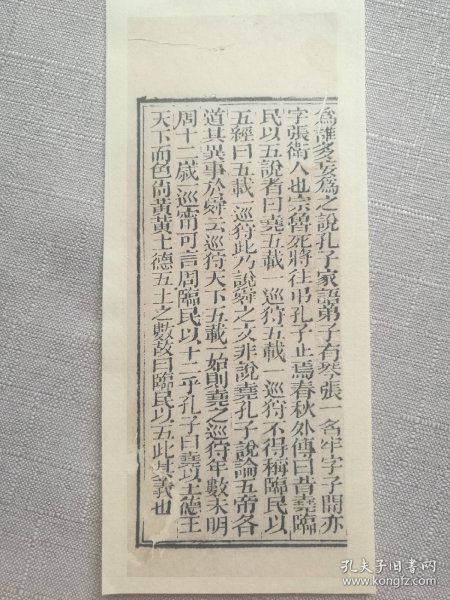 為誰多妄為之說孔子家語弟子有琴張一名牢字子開亦
字張衛人也宗魯死將往弔孔子止焉春秋外傳曰昔堯臨
民以五說者曰堯五載一巡狩五載一巡狩不得稱臨民以
五經曰五載一巡狩此乃說舜之文非說堯孔子說論五帝各
道其異事於舜云巡狩天下五載一始則堯之巡狩年數未明
周十二歲一巡甯可言周臨民以十二乎孔子曰堯以土德王
天下而色尚黃黃土德五土之數故曰臨民以五此其義也
孔夫子旧书网
www.kongfz.com